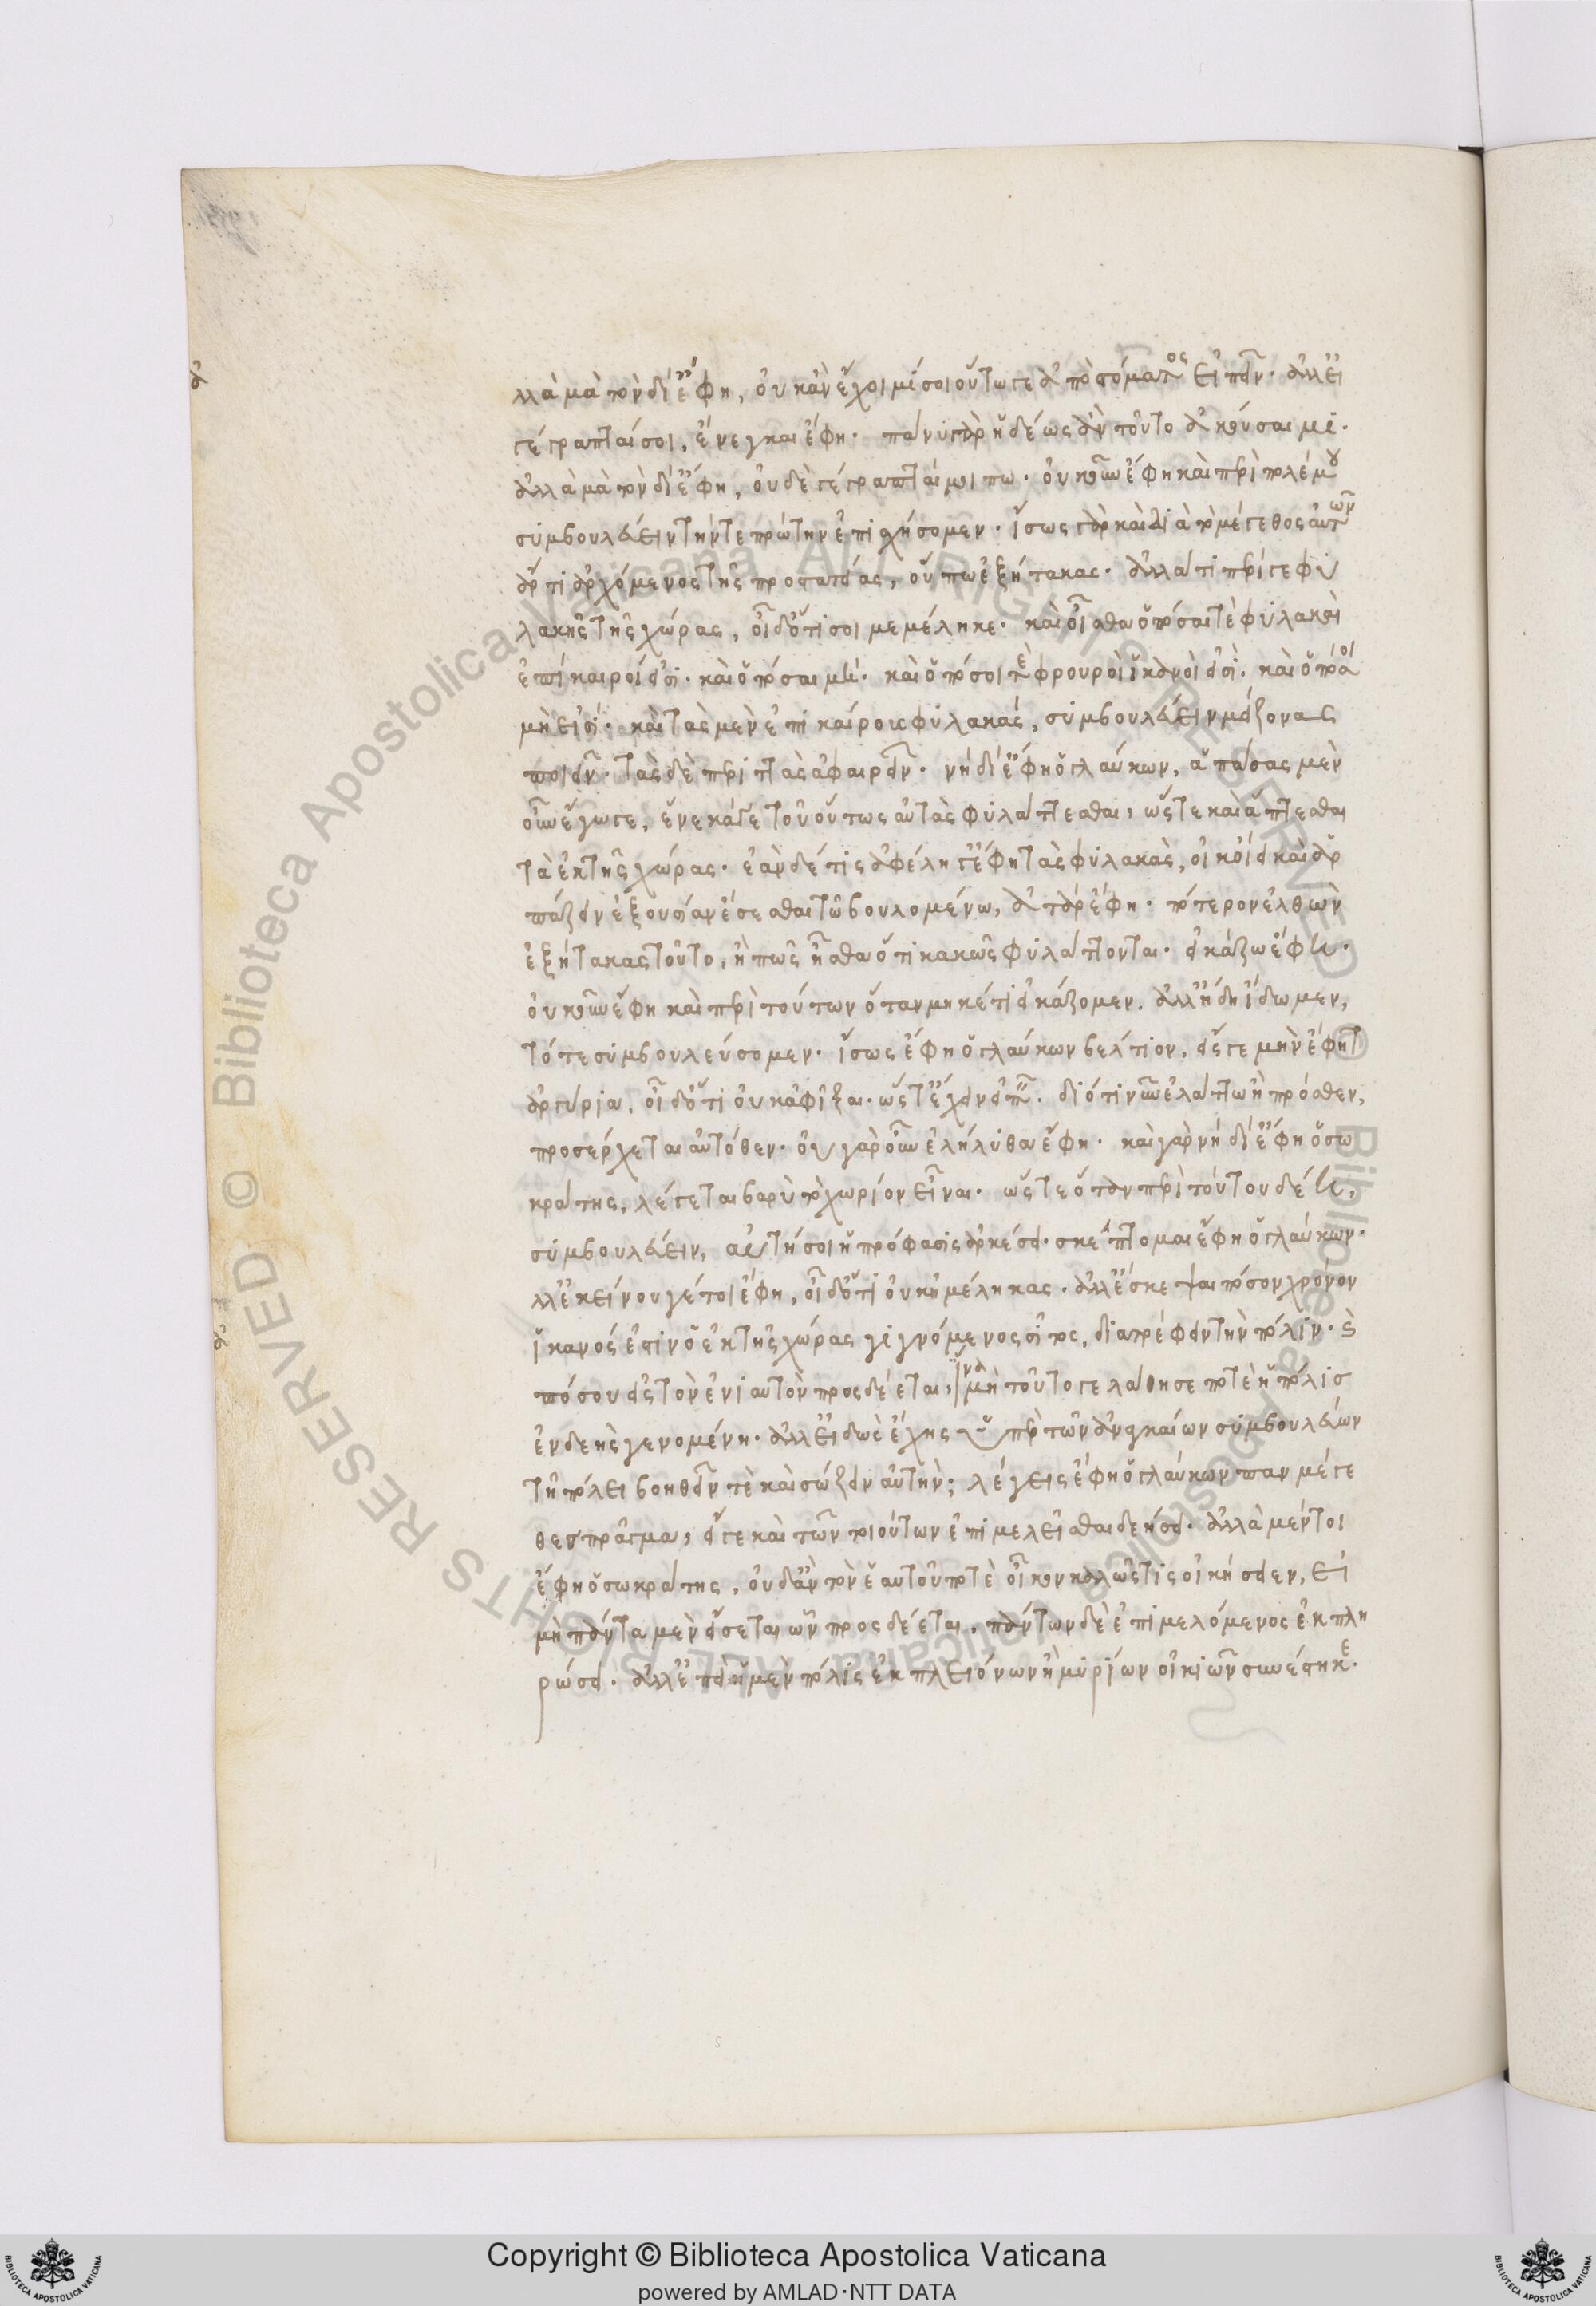 λλὰ μὰ τὸν δί ἔφη, οὐκ ἂν ἔχοιμί σοι οὕτωσγε ἀπὸ στόματος εἰπεῖν. ἀλλ εἰ
γέγραπταί σοι, ἔνεγκαι ἔφη. πάνυ γὰρ ἡδέως ἂν τοῦτο ἀκούσαιμι.
ἀλλὰ μὰ τὸν δί ἔφη, οὐδὲ γέγραπταί μοι πω. οὐκοῦν ἔφη καὶ περὶ πολέμου
συμβουλεύειν τήν τε πρώτην ἐπισχήσομεν. ἴσως γὰρ καὶ διὰ τὸ μέγεθος αὐτῶν
ἄρτι ἀρχόμενος τῆς προστατείας, οὔπω ἐξήτακας. ἀλλά τι περί γε φυ
λακῆς τῆς χώρας, οἶδ ὅτι σοι μεμέληκε. καὶ οἶσθα ὁπόσαι τὲ φυλακαὶ
ἐπίκαιροί εἰσι. καὶ ὁπόσαι μή. καὶ ὁπόσοι τὲ φρουροὶ ἱκανοὶ εἰσὶ. καὶ ὁπόσοι
μὴ εἰσί. καὶ τὰς μὲν ἐπικαίρους φυλακάς, συμβουλεύειν μείζονας
ποιεῖν. τὰς δὲ περιττὰς ἀφαιρεῖν. νή δί ἔφη ὁ γλαύκων, ἁπάσας μὲν
οὖν ἔγωγε, ἕνεκά γε τοῦ οὕτως αὐτὰς φυλάττεσθαι, ὥστε καὶ ἅπτεσθαι
τὰ ἐκ τῆς χώρας. ἐὰν δέ τις ἀφέλη γ ἔφη τὰς φυλακὰς, οὐκ οἴει καὶ ἁρ
πάζειν ἐξουσίαν ἔσεσθαι τῶ βουλομένω, ἀτὰρ ἔφη. πότερον ἐλθὼν
ἐξήτακας τοῦτο, ἢ πῶς οἶσθα ὅτι κακῶς φυλάττονται. εἰκάζω ἔφη.
οὐκοῦν ἔφη καὶ περὶ τούτων ὅταν μηκέτι εἰκάζομεν. ἀλλ ἤδη ἴδωμεν,
τότε συμβουλεύσομεν. ἴσως ἔφη ὁ γλαύκων βέλτιον, εἴς γε μὴν ἔφη τ
ἀργύρια, οἶδ ὅτι οὐκ ἀφῖξαι. ὥστ ἔχειν εἰπεῖν. διότι νῦν ἐλάττω ἢ πρόσθεν,
προσέρχεται αὐτόθεν. οὐ γὰρ οὖν ἐλήλυθα ἔφη. καὶ γὰρ νή δί ἔφη ὁ σω
κράτης, λέγεται βαρὺ τὸ χωρίον εἶναι. ὥστε ὅταν περὶ τούτου δέη,
συμβουλεύειν, αὕτη σοι ἡ πρόφασις ἀρκέσει. σκέπτομαι ἔφη ὁ γλαύκων.
λλ ἐκείνου γέ τοι ἔφη, οἶδ ὅτι οὐκ ἠμέληκας. ἀλλ ἔσκεψαι πόσον χρόνον
ἱκανός ἐστιν ὁ ἐκ τῆς χώρας γιγνόμενος σῖτος, διατρέφειν τὴν πόλιν. καὶ
πόσου εἰς τὸν ἐνιαυτὸν προσδέεται, ἵνα μὴ τοῦτο γε λάθη σε ποτὲ ἡ πόλις
ἐνδεὴς γενομένη. ἀλλ εἰδὼς ἔχης ὑπὲρ τῶν ἀναγκαίων συμβουλεύων
τῆ πόλει βοηθεῖν τὲ καὶ σώζειν αὐτήν; λέγεις ἔφη ὁ γλαύκων παν μέγε
θες πρᾶγμα, εἴγε καὶ τῶν τοιούτων ἐπιμελεῖσθαι δεήσει. ἀλλὰ μέντοι
ἔφη ὁ σωκράτης, οὐδ ἂν τὸν ἑαυτοῦ ποτὲ οἶκον καλῶς τις οἰκήσειεν, εἰ
μὴ πάντα μὲν εἴσεται ὧν προσδέεται, πάντων δὲ ἐπιμελόμενος ἐκπλη
ρώσει. ἀλλ ἐπεὶ ἡ μὲν πόλις ἐκ πλειόνων ἢ μυρίων οἰκιῶν συνέστηκε.
Biblioteca Apostolica Vaticana ALL RIGHTS RESERVED ©
Copyright © Biblioteca Apostolica Vaticana
powered by AMLAD·NTT DATA